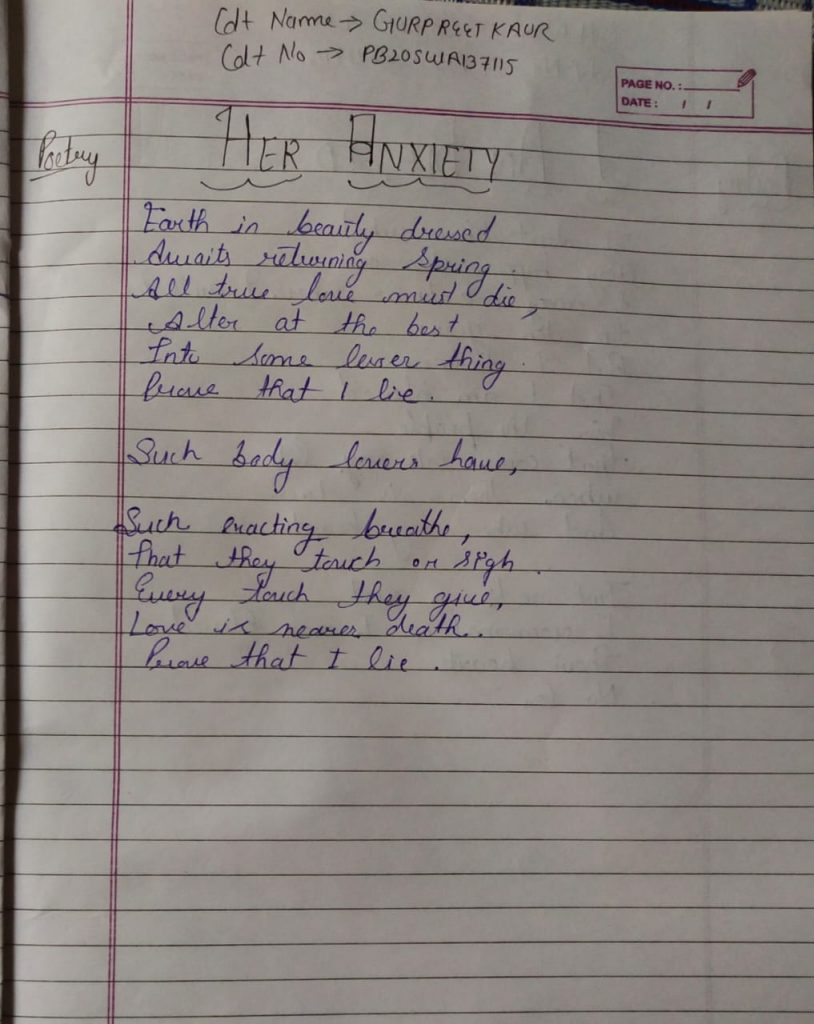 Cdt Name → GURPREET KAUR
Cdt No → PB20SWA137115
PAGE NO. :
DATE : / /
Poetry
HER ANXIETY
Earth in beauty dressed
Awaits returning spring.
All true love must die,
Alter at the best
Into some lesser thing.
Prove that I lie.
Such body lovers have,
Such exacting breathe,
That they touch or sigh.
Every touch they give,
Love is nearer death.
Prove that I lie.